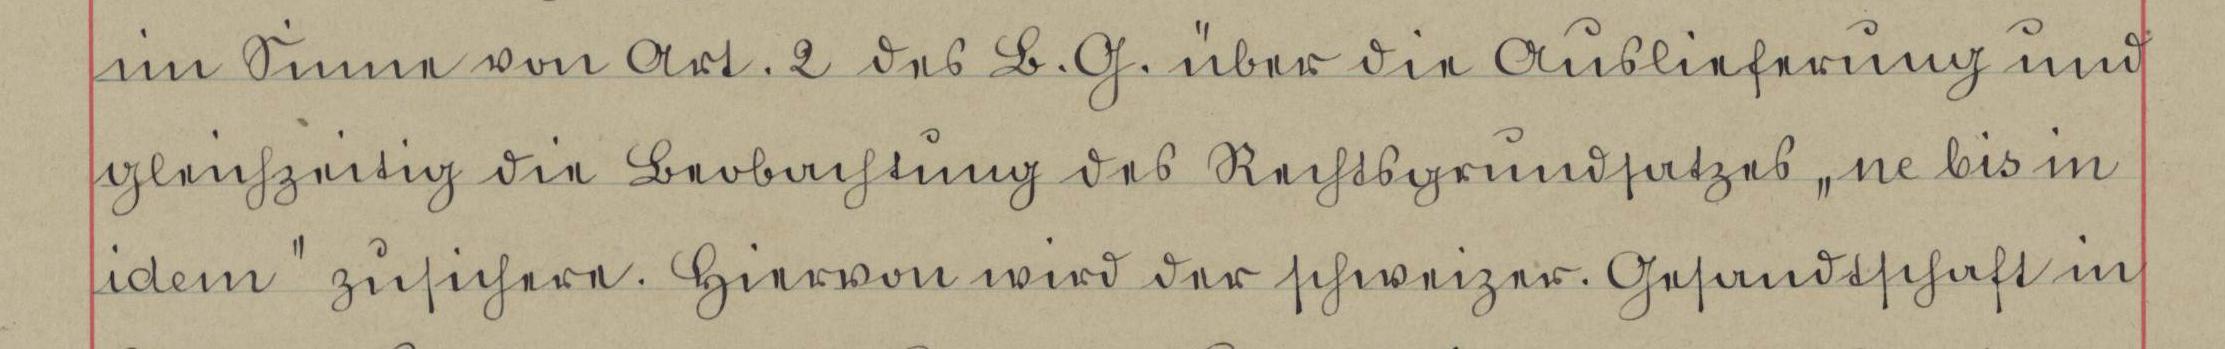 im Sinne von Art. 2 des B. G. über die Auslieferung und
gleichzeitig die Beobachtung des Rechtsgrundsatzes „ne bis in
idem" zusichere. Hiervon wird der schweizer. Gesandtschaft in